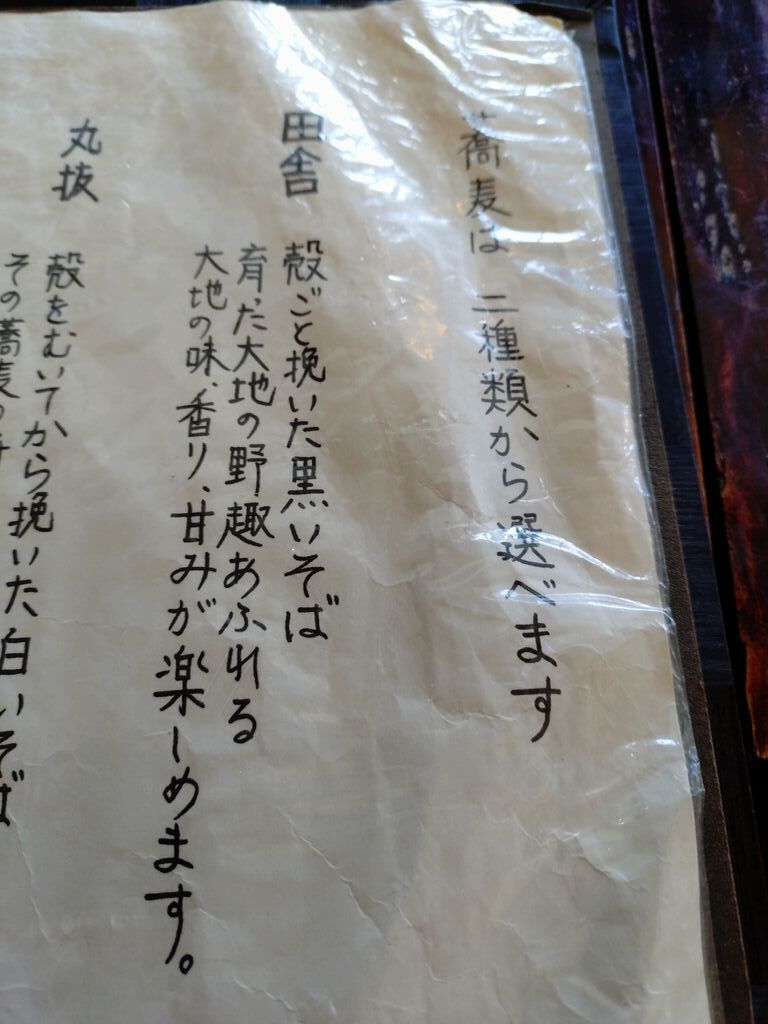 蕎麦は 二種類から選べます
田舎 殻ごと挽いた黒いそば
育った大地の野趣あふれる
大地の味、香り、甘みが楽しめます。
丸抜 殻をむいてから挽いた白いそば
その蕎麦の